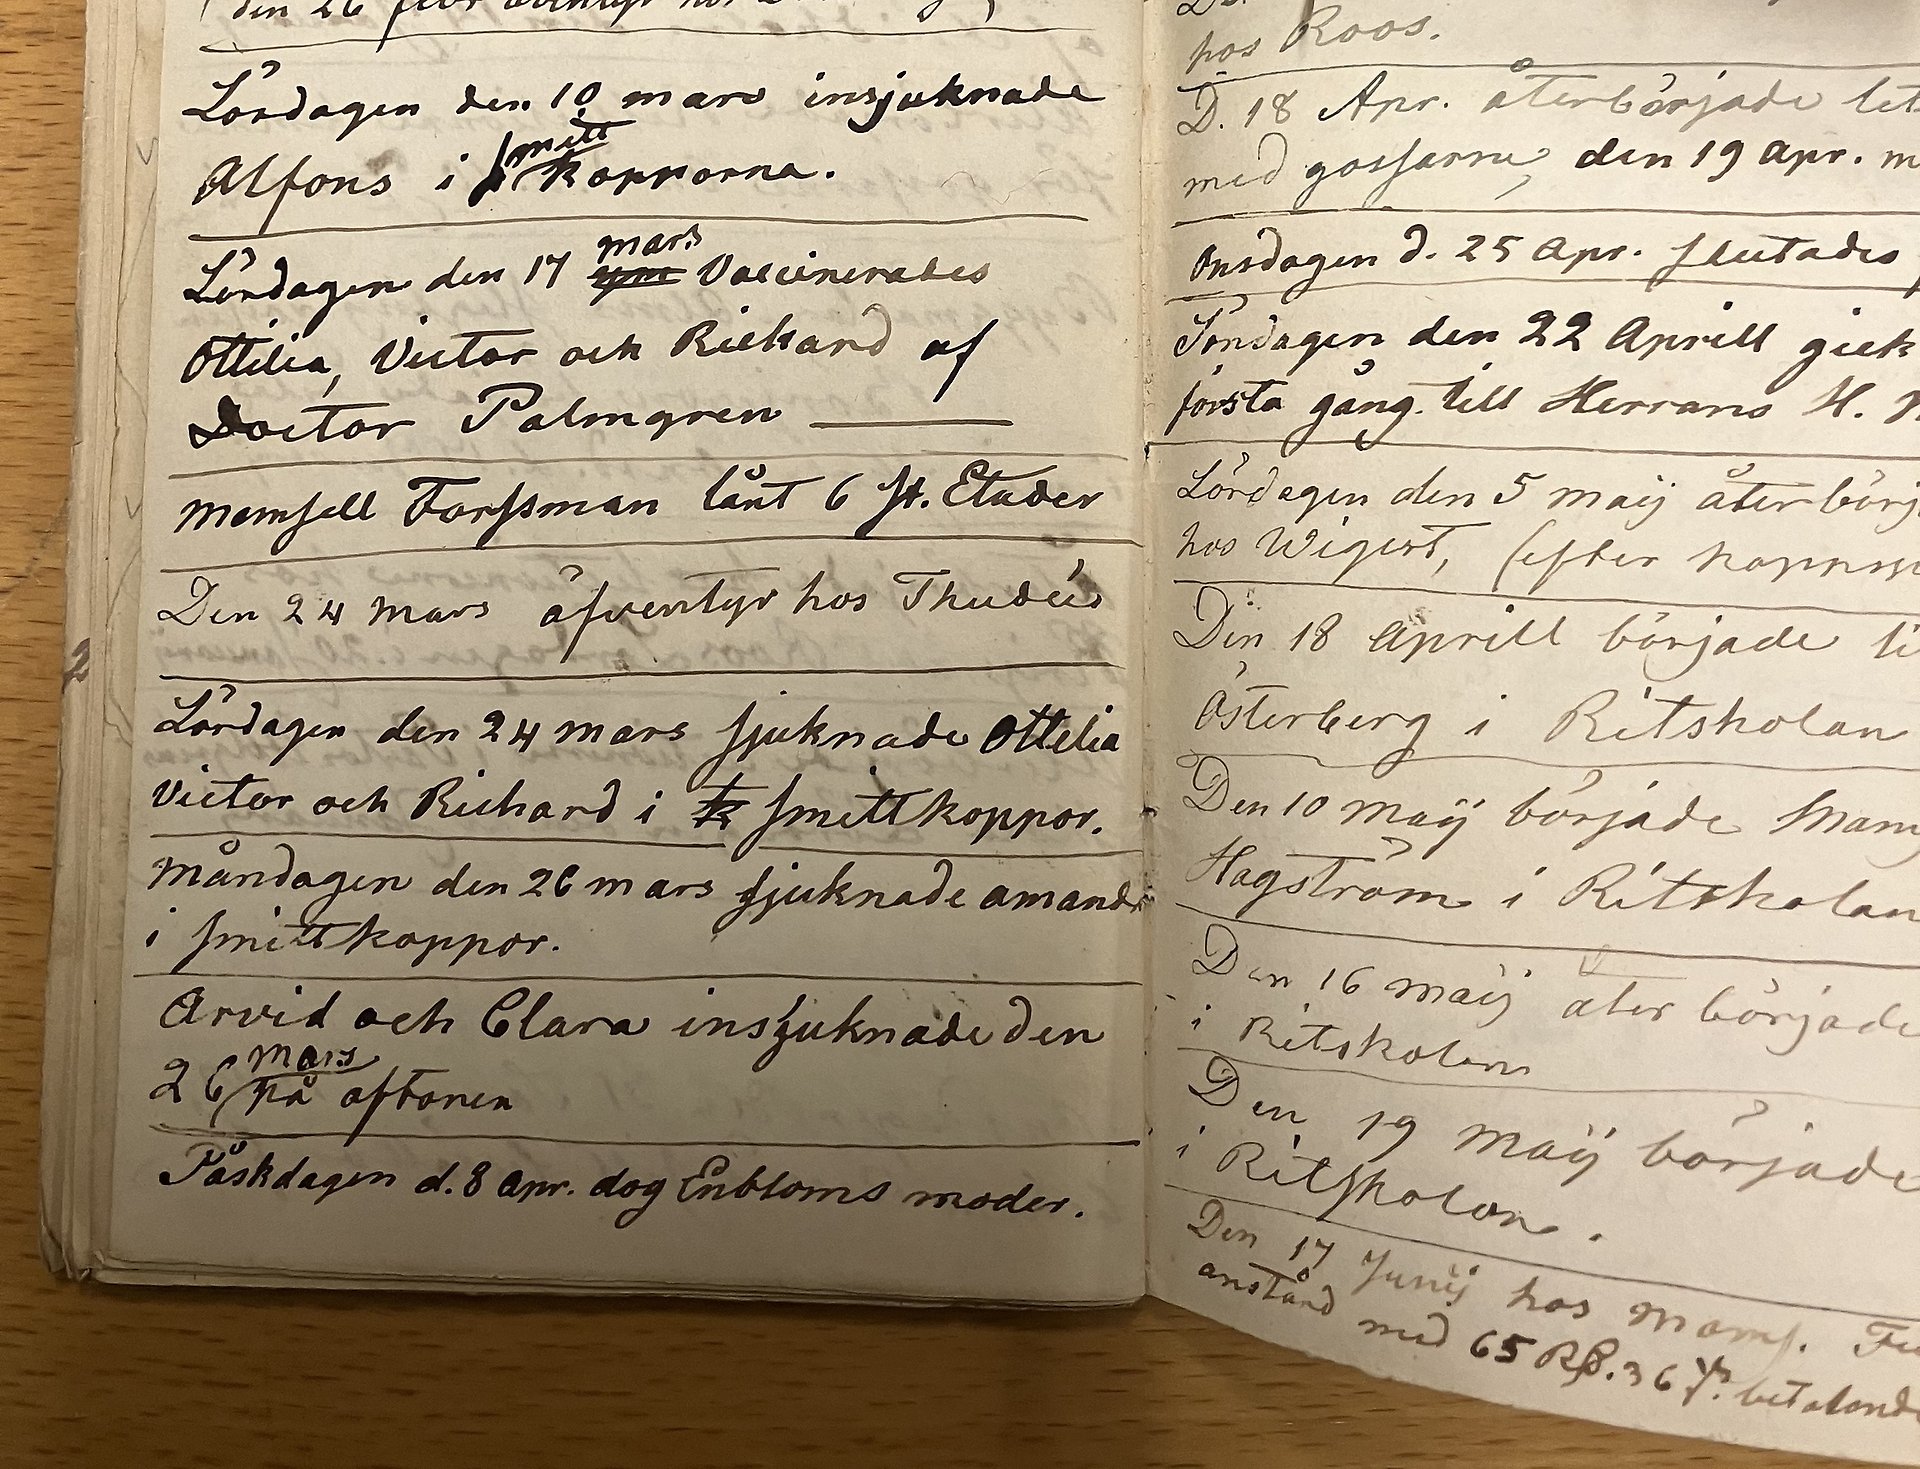 den 26 febr
Lördagen den 10 mars insjuknade
mitt
Alfons i kopporna.
mars
Lördagen den 17 Vaccinerades
Ottilia, Victor och Rickard af
Doctor Palmgren
Mamsell Forssman lånt 6 st. Etuder
Den 24 mars äfventyr hos Thudés
Lördagen den 24 mars sjuknade Ottilia
Victor och Richard i smittkoppor.
Måndagen den 26 mars sjuknade Amanda
i smittkoppor.
Arvid och Clara insjuknade den
mars
26 på aftonen
Påskdagen d. 8 Apr. dog Enbloms moder.
hos Roos.
D. 18 Apr. återbörjade
med gossarne, den 19 Apr. m
Onsdagen d. 25 Apr. slutades
Söndagen den 22 Aprill gick
första gång till Herrans H. N
Lördagen den 5 maÿ återbörj
hos Wigert, (efter
Den 18 Aprill började
Österberg i Ritskolan
Den 10 maÿ började Mam
Hagström i Ritskolan
Den 16 maÿ åter började
i Ritskolan
Den 19 maÿ började
i Ritskolan.
Den 17 Junÿ hos Mams.
anstånd med 65 R 36 betalande